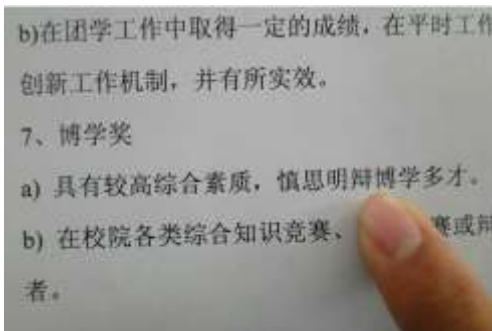 b)在团学工作中取得一定的成绩，在平时工作
创新工作机制，并有所实效。
7、博学奖
a) 具有较高综合素质，慎思明辩博学多才。
b) 在校院各类综合知识竞赛、赛或辩
者。